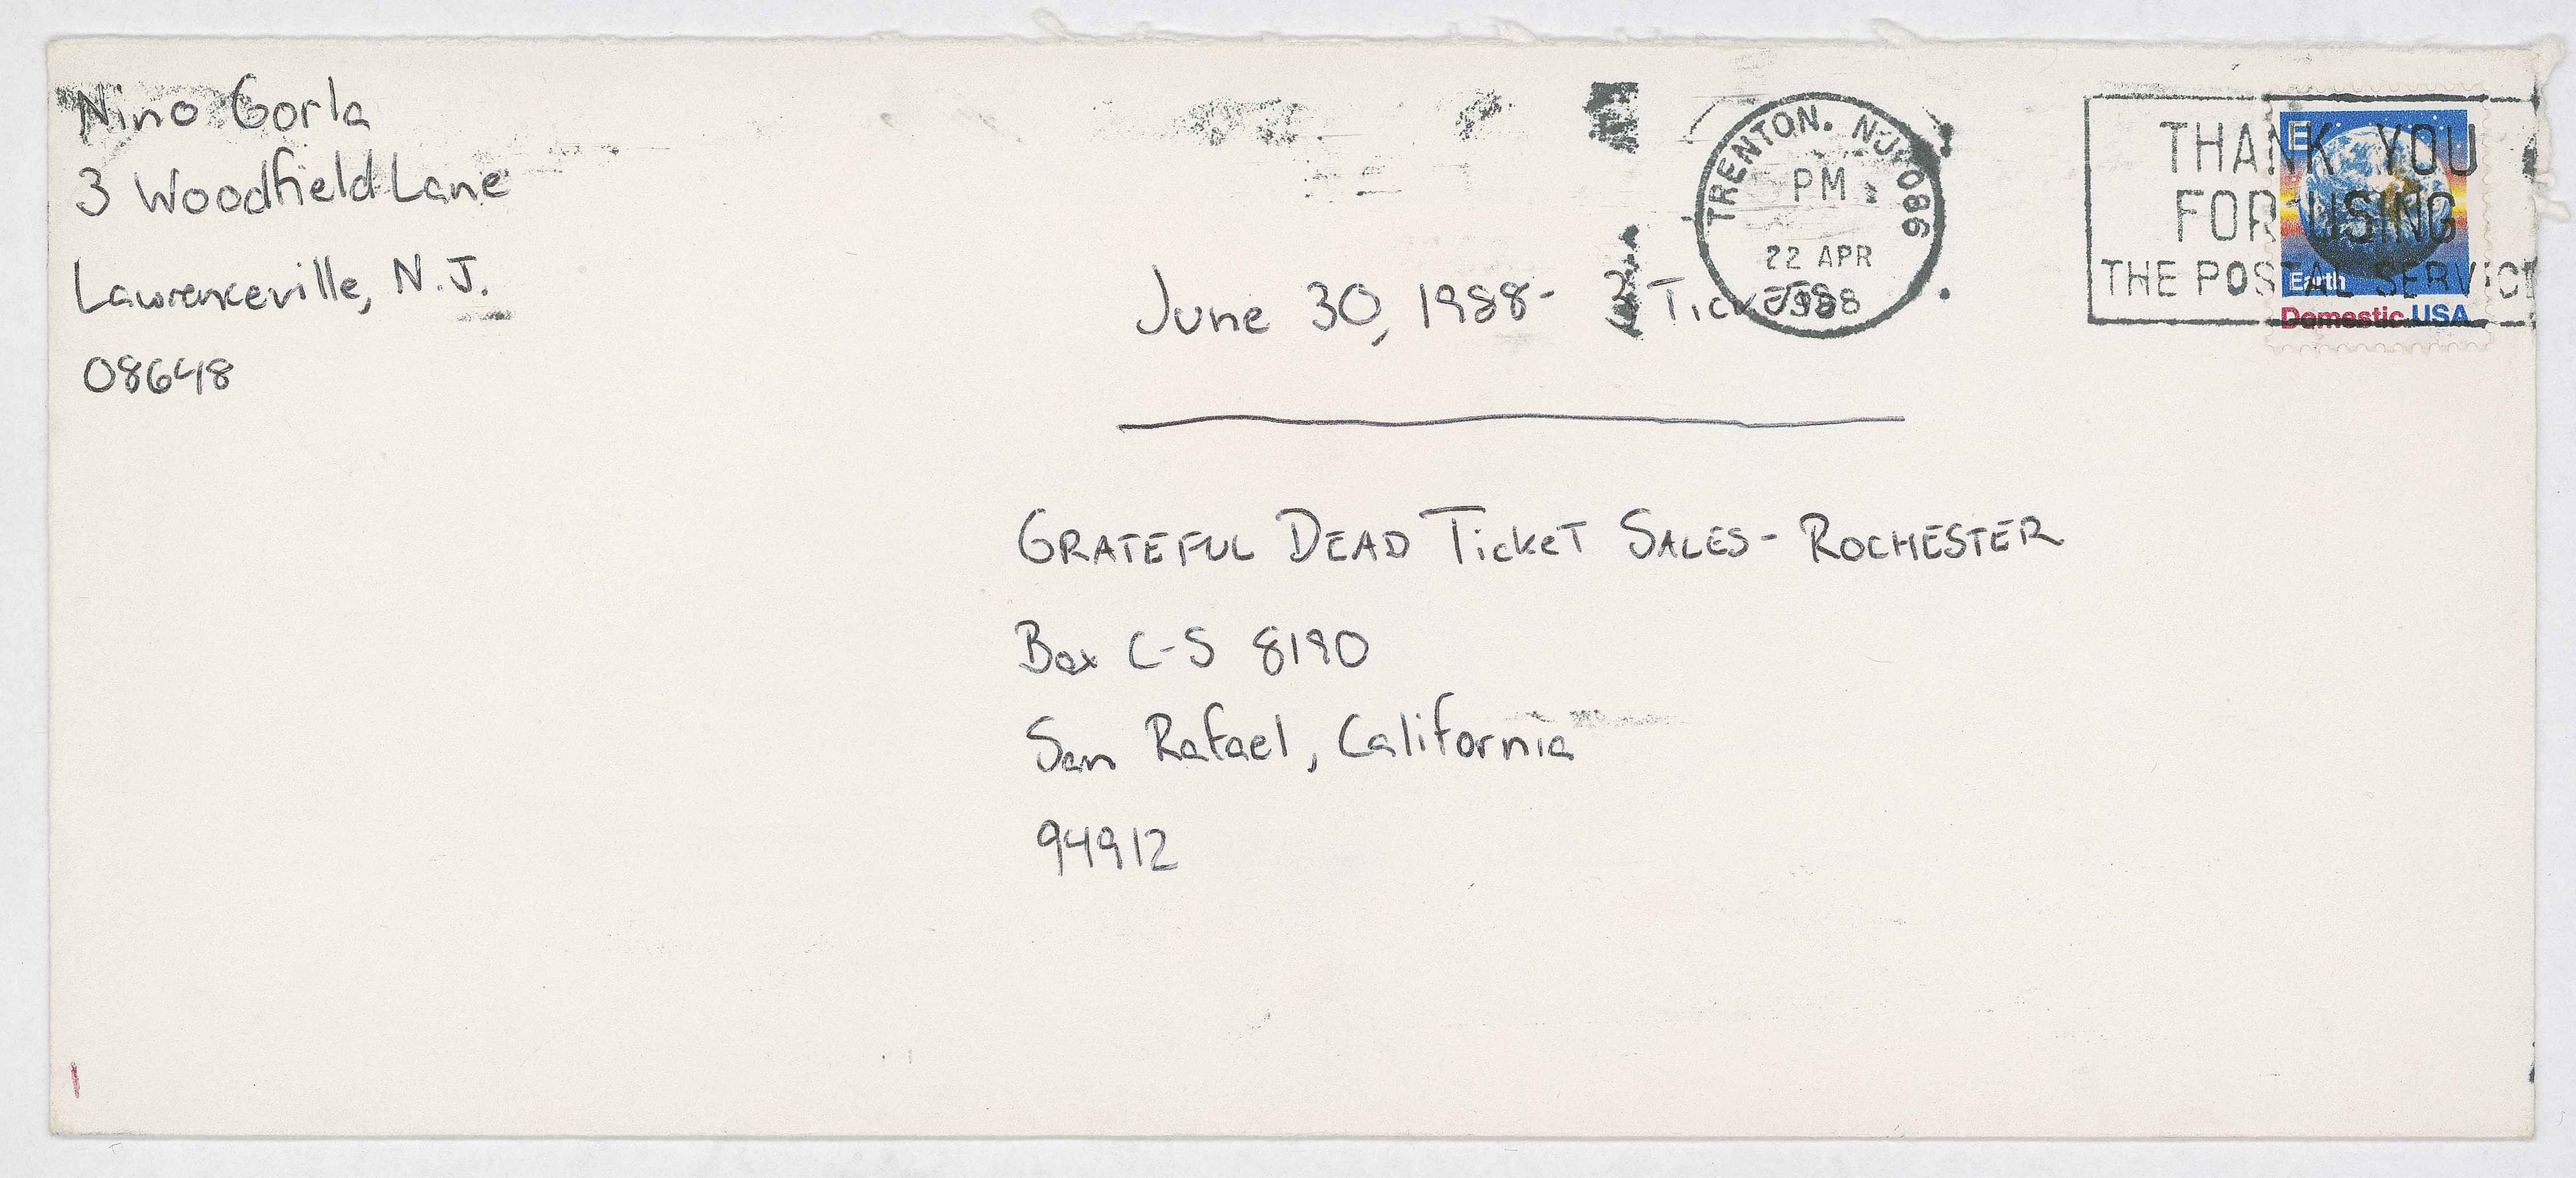 Nino Gorla
3 Woodfield Lane
Lawrenceville, N.J.
08648
June 30, 1988- 3 Tickets
TRENTON, NJ 086
PM
22 APR
1988
THANK YOU
FOR USING
THE POSTAL SERVICE
E
Earth
Domestic USA
GRATEFUL DEAD TickeT SALES- ROCHESTER
Box C-S 8190
San Rafael, California
94912